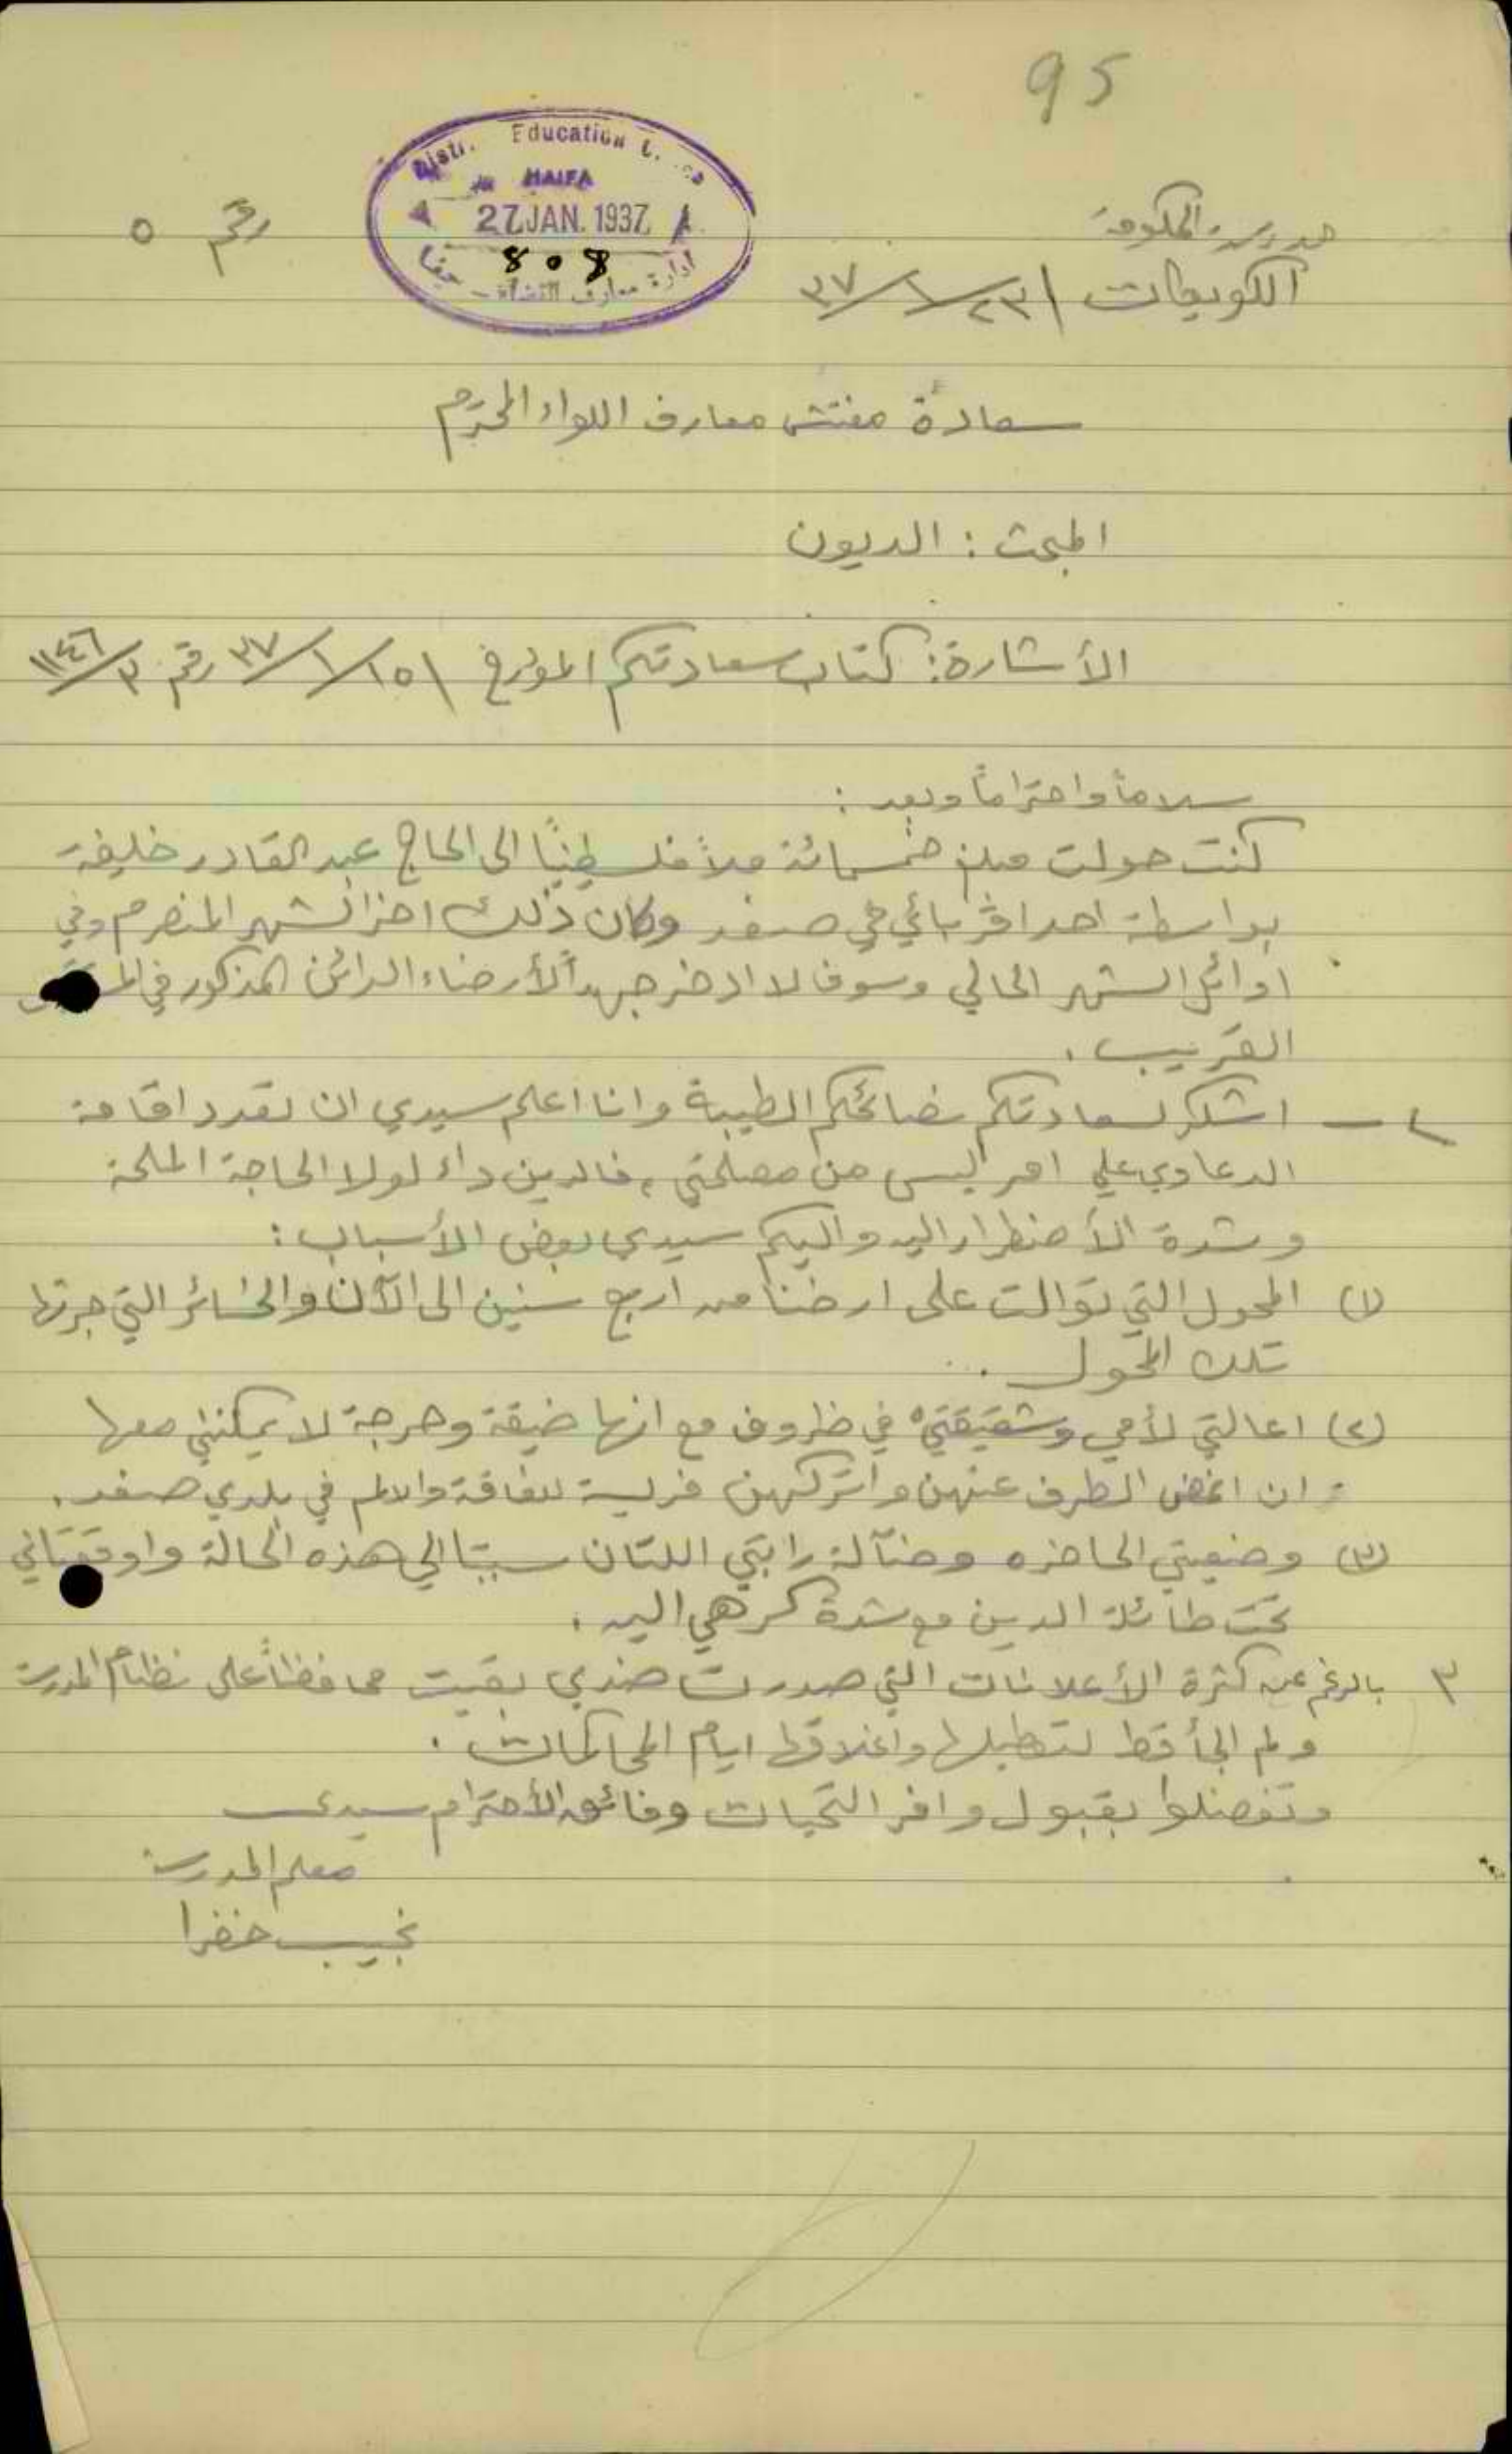 95
Distr. Education
HAIFA
27 JAN. 1937
808
ادارة معارف القضاء - حيفا
مدرسة الحكومة
رقم ٥
الكويكات ٢٣/١/٣٧
سعادة مفتش معارف اللواء المحترم
المبحث : الديون
الأشارة : كتاب سعادتكم المؤرخ ١٥/١/٣٧ رقم ٣/١١٤٦
سلاماً واحتراماً وبعد :
كنت حولت مبلغ خمسمائة ملاً فلسطينياً الى الحاج عبد القادر خليفة
بواسطة احد اقربائي في صفد وكان ذلك اخر الشهر المنصرم وفي
اوائل الشهر الحالي وسوف لا ادخر جهداً لأرضاء الدائن المذكور في
القريب .
٢ - اشكر لسعادتكم نصائحكم الطيبة وانا اعلم سيدي ان تعدد اقامة
الدعاوي علي امر ليس من مصلحتي ، فالدين داء لولا الحاجة الملحة
وشدة الأضطرار اليه واليكم سيدي بعض الأسباب :
(١) المحول التي توالت على ارضنا من اربع سنين الى الآن والخسائر التي جرتها
تلك المحول .
(٢) اعالتي لأمي وشقيقتيّ في ظروف مع انها ضيقة وحرجة لا يمكنني معها
ان اغض الطرف عنهن واتركهن فريسة للفاقة والالم في بلدي صفد .
(٣) وضعيتي الحاضره وضآلة راتبي اللتان سببتا لي هذه الحالة واوقعتاني
تحت طائلة الدين مع شدة كرهي اليه .
٣ بالرغم عن كثرة الأعلانات التي صدرت ضدي بقيت محافظاً على نظام المدرسة
ولم الجأ قط لتعطيلها واغلاقها ايام المحاكمات .
وتفضلوا بقبول وافر التحيات وفائق الأحترام سيدي
معلم المدرسة
نجيب خضرا